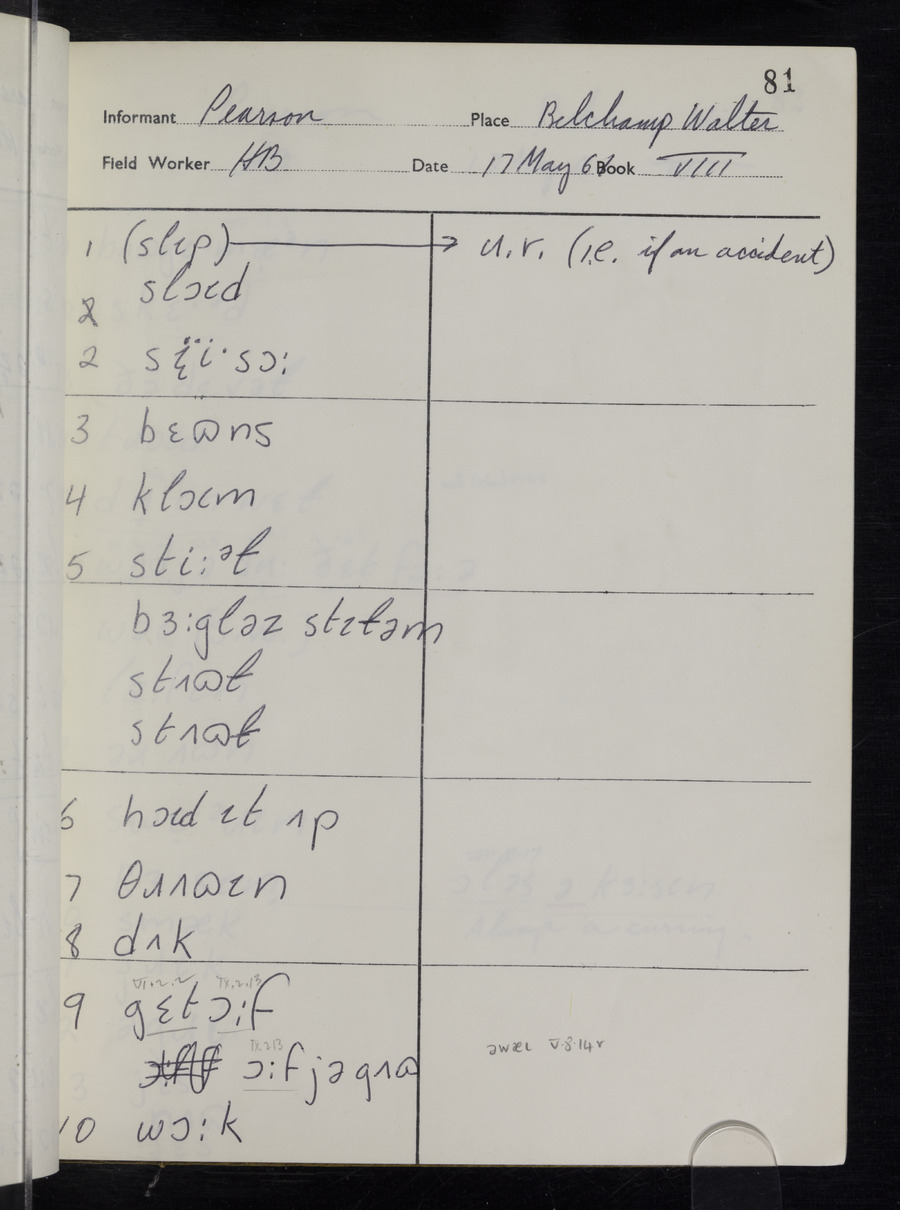 81
Informant Pearson Place Belchamp Walter
Field Worker HB Date 17 May 62 Book VIII
1 (slɪp) → u.r. (i.e. if an accident)
slɔɪd
2 sɪ̈i·sɔ:
3 bɛɷns
4 klɔɪm
5 sti:ᵊt
bɜ:gləz stɪtəm
stɹɷt
stɹɷt
6 hɔɪd ɪt ʌp
7 θɹʌɷɪn
8 dʌk
VI.2.2 IX.2.13
9 gɛt ɔ:f
IX.2.13
ɔ:f jə gɹɷ
əwæɪ V.8.14r
10 wɔ:k